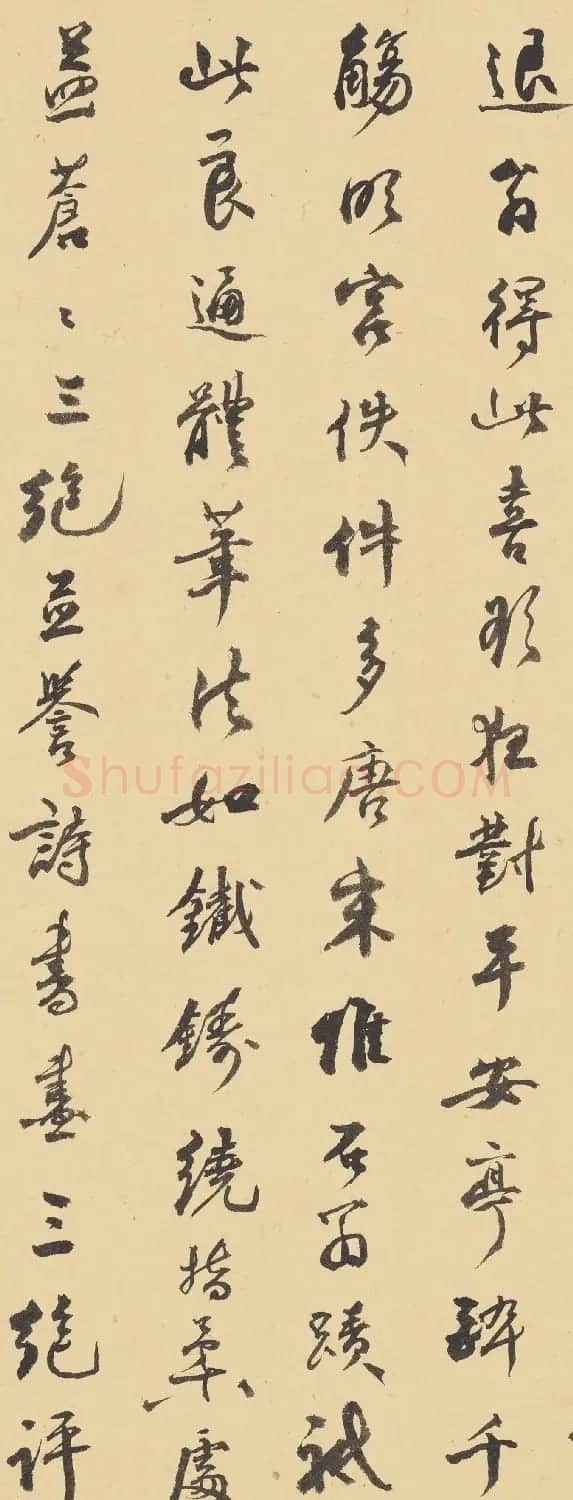 退翁得此喜欲狂對平安亭醉千
觴故宮佚件多唐宋惟石翁蹟祇
此良通體筆法如鐵鑄繞指柔處
益蒼〻三絕並譽詩書畫三絕評
Shufaziliao.COM